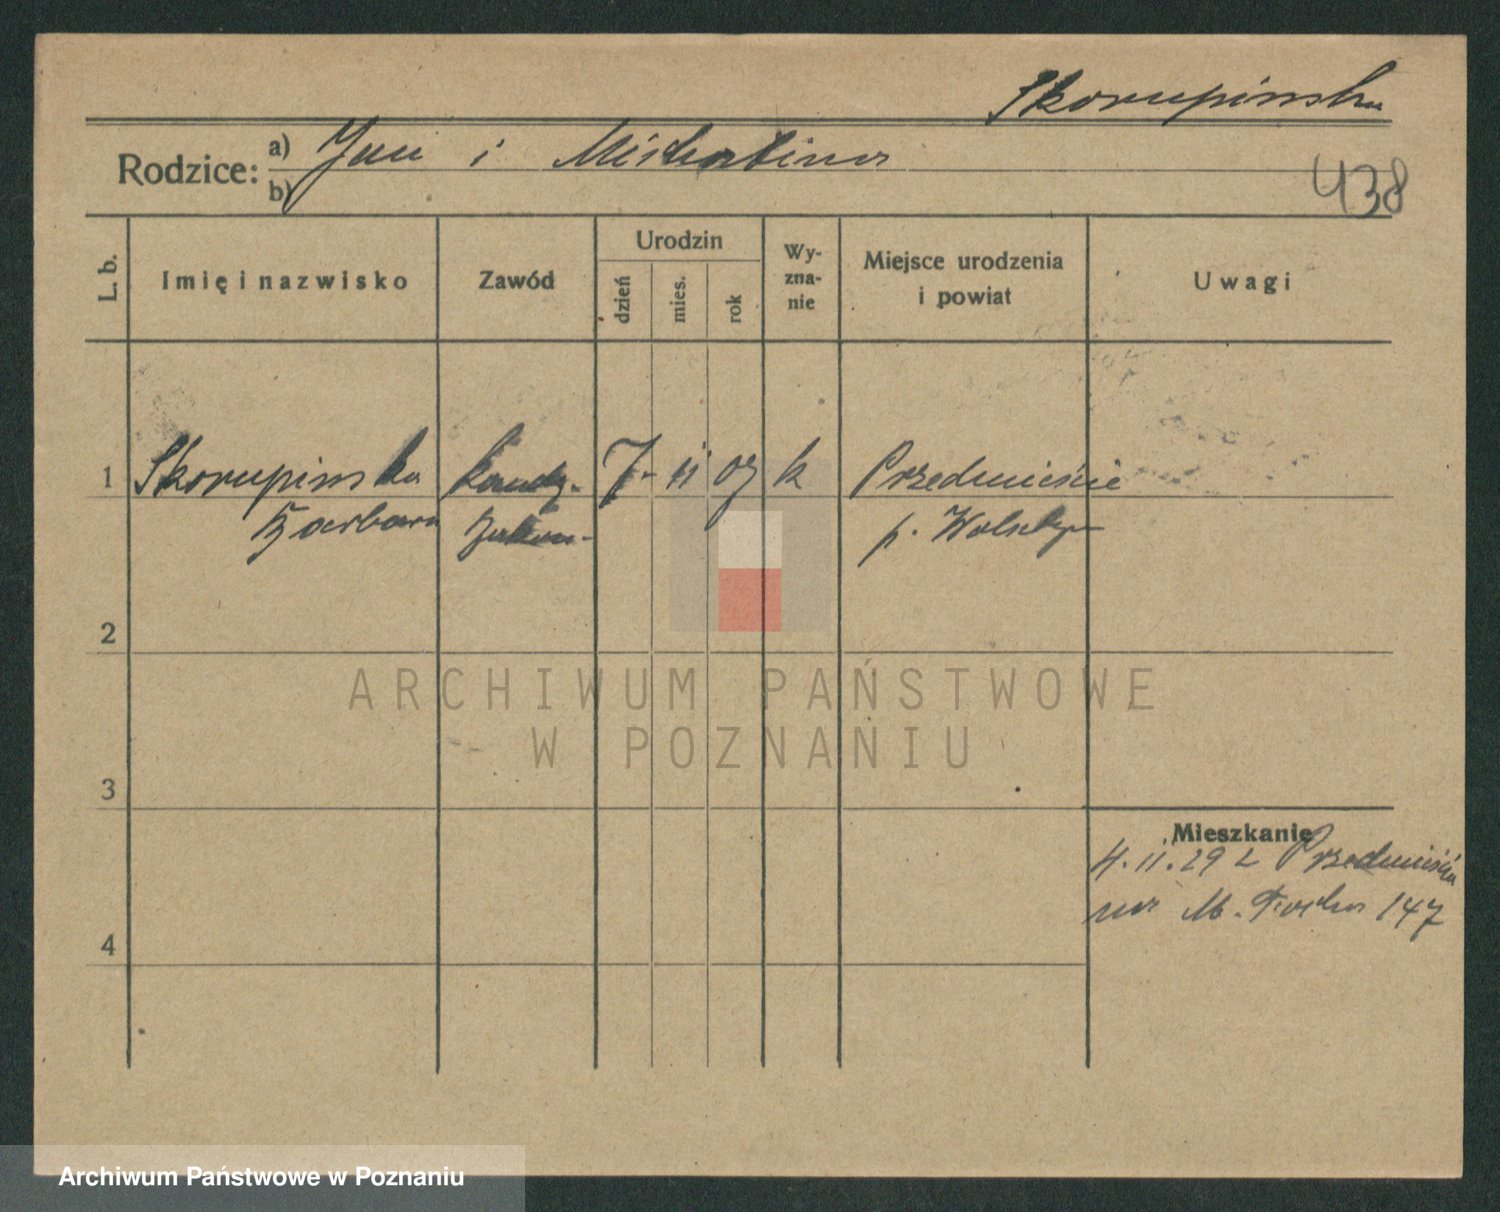 Skorupinska
Rodzice: a) Jan i Michalina
b)
438
L. b.
Imię i nazwisko
Zawód
Urodzin
dzień
mies.
rok
Wy-
zna-
nie
Miejsce urodzenia
i powiat
Uwagi
1
Skorupinska
Barbara
kandy.
Zakon.
7-
ii
07
k
Przedmieście
p.
2
3
4
Mieszkanie
4.ii.29 z Przedmieścia
na M. Focha 147
ARCHIWUM PAŃSTWOWE
W POZNANIU
Archiwum Państwowe w Poznaniu